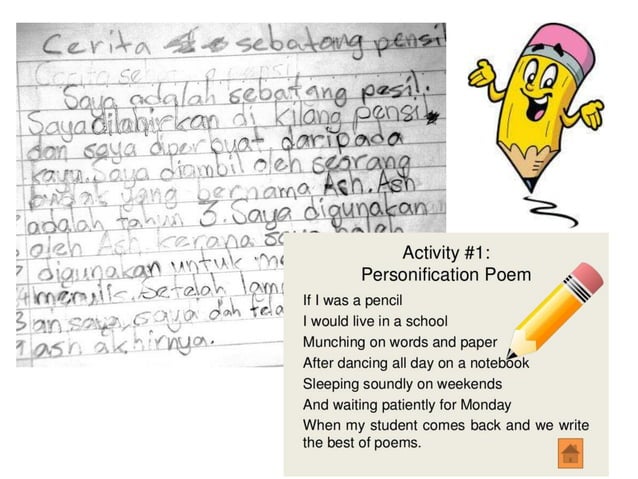 Cerita sebatang pensil
Saya adalah sebatang pesil.
Saya dilahirkan di kilang pensil
dan saya diperbuat daripada
kayu. Saya diambil oleh seorang
budak yang bernama Ash. Ash
adalah tahun 3. Saya digunakan
oleh Ash kerana
digunakan untuk
menulis. Setelah
saya, saya dah
ash akhirnya.
Activity #1:
Personification Poem
If I was a pencil
I would live in a school
Munching on words and paper
After dancing all day on a notebook
Sleeping soundly on weekends
And waiting patiently for Monday
When my student comes back and we write
the best of poems.